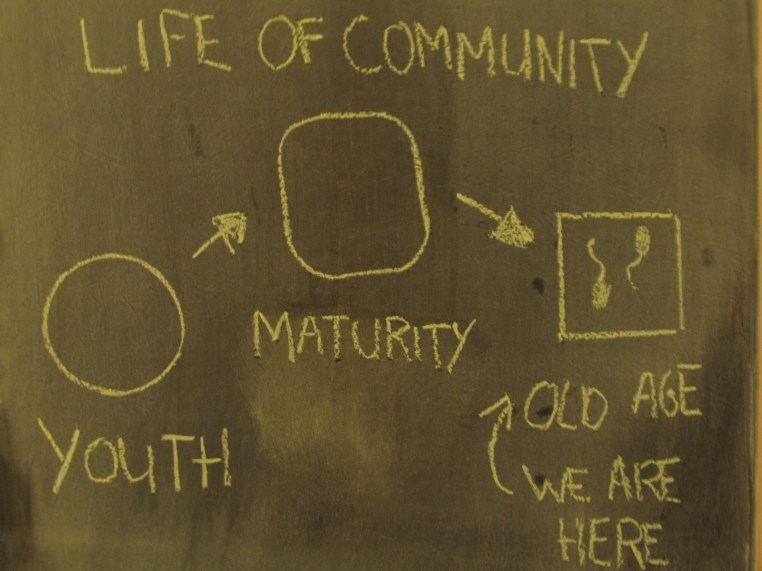 LIFE OF COMMUNITY
MATURITY
YOUTH
OLD AGE
WE ARE
HERE